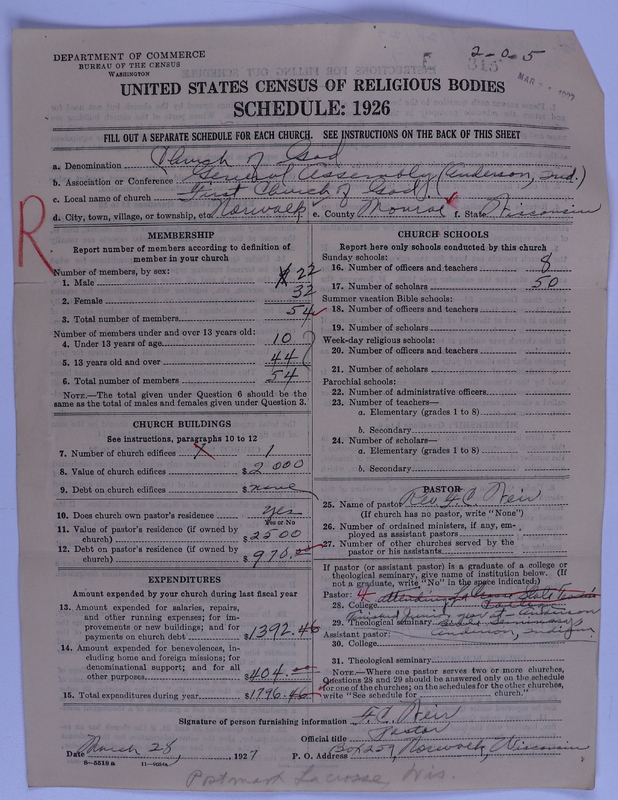 2-0-5
315
DEPARTMENT OF COMMERCE
BUREAU OF THE CENSUS
WASHINGTON
UNITED STATES CENSUS OF RELIGIOUS BODIES
SCHEDULE: 1926
FILL OUT A SEPARATE SCHEDULE FOR EACH CHURCH. SEE INSTRUCTIONS ON THE BACK OF THIS SHEET
a. Denomination Church of God
b. Association or Conference General Assembly (Anderson, Ind.)
c. Local name of church First Church of God
d. City, town, village, or township, etc. Norwalk e. County Monroe f. State Wisconsin
R
MEMBERSHIP
Report number of members according to definition of
member in your church
Number of members, by sex:
1. Male 22
2. Female 32
3. Total number of members 54
Number of members under and over 13 years old:
4. Under 13 years of age 10
5. 13 years old and over 44
6. Total number of members 54
NOTE.—The total given under Question 6 should be
same as the total of males and females given under Question 3.
CHURCH BUILDINGS
See instructions, paragraphs 10 to 12
7. Number of church edifices 1
8. Value of church edifices $ 2000
9. Debt on church edifices $ none
10. Does church own pastor's residence yes
Yes or No
11. Value of pastor's residence (if owned by
church) $ 2500
12. Debt on pastor's residence (if owned by
church) $ 970.00
EXPENDITURES
Amount expended by your church during last fiscal year
13. Amount expended for salaries, repairs,
and other running expenses; for im-
provements or new buildings; and for
payments on church debt $ 1392.46
14. Amount expended for benevolences, in-
cluding home and foreign missions; for
denominational support; and for all
other purposes $ 404.00
15. Total expenditures during year $ 1796.46
CHURCH SCHOOLS
Report here only schools conducted by this church
Sunday schools:
16. Number of officers and teachers 8
17. Number of scholars 50
Summer vacation Bible schools:
18. Number of officers and teachers
19. Number of scholars
Week-day religious schools:
20. Number of officers and teachers
21. Number of scholars
Parochial schools:
22. Number of administrative officers
23. Number of teachers—
a. Elementary (grades 1 to 8)
b. Secondary
24. Number of scholars—
a. Elementary (grades 1 to 8)
b. Secondary
PASTOR
25. Name of pastor Rev. F. C. Neir
(If church has no pastor, write "None")
26. Number of ordained ministers, if any, em-
ployed as assistant pastors
27. Number of other churches served by the
pastor or his assistants
If pastor (or assistant pastor) is a graduate of a college or
theological seminary, give name of institution below. (If
not a graduate, write "No" in the space indicated:)
Pastor: 4 attending La Crosse State
28. College
29. Theological seminary Bible Seminary
Assistant pastor: Anderson, Indiana
30. College
31. Theological seminary
NOTE.—Where one pastor serves two or more churches,
Questions 28 and 29 should be answered only on the schedule
for one of the churches; on the schedules for the other churches,
write "See schedule for church."
Signature of person furnishing information F. C. Neir
Official title Pastor
Date March 28, 1927 P. O. Address Box 259, Norwalk, Wisconsin
8—5518a 11—9034a
Postmark Lacrosse, Wis.